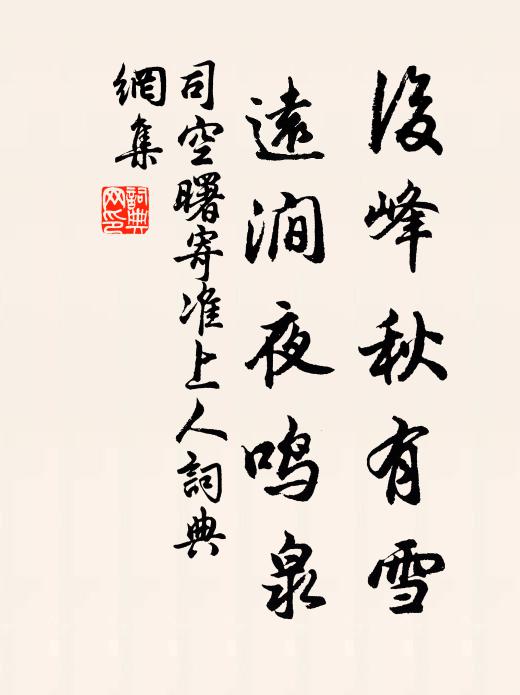 後峰秋有雪
遠澗夜鳴泉
司空曙寄准上人詞典
網集
詞典
网印